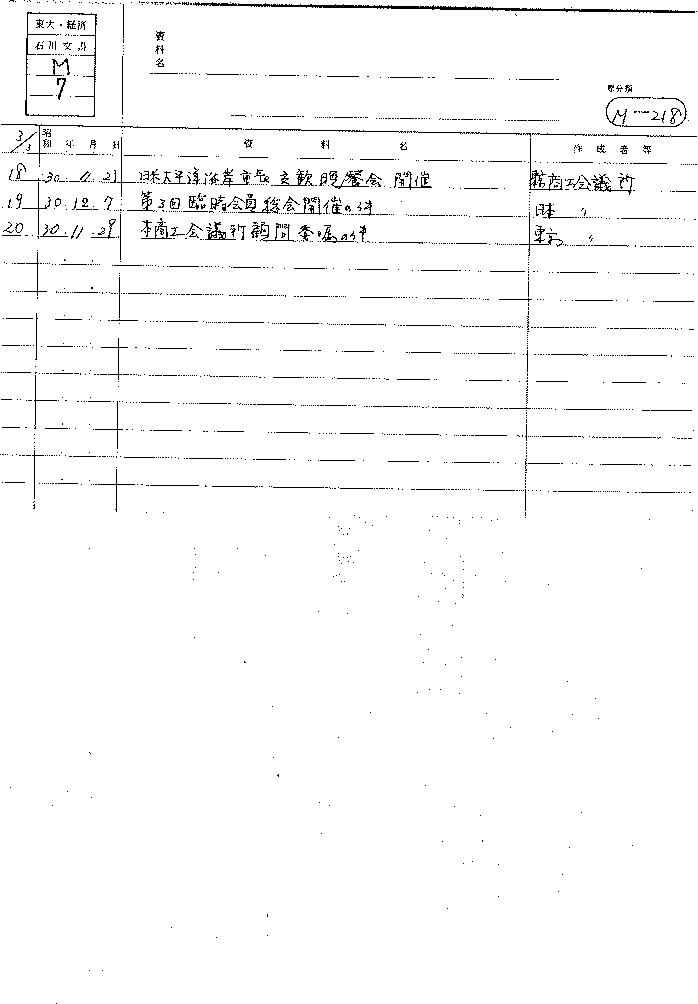 東大・経済
石川文書
M
7
資料名
原分類
M-218
3/3 昭和 年 月 日 資料名 作成者等
18 30 11 23 日米太平洋沿岸市長交歓晩餐会 開催 商工会議所
19 30.12.7 第3回臨時会員総会開催の件 日本 〃
20 30.11.29 本商工会議所顧問委嘱の件 東京 〃